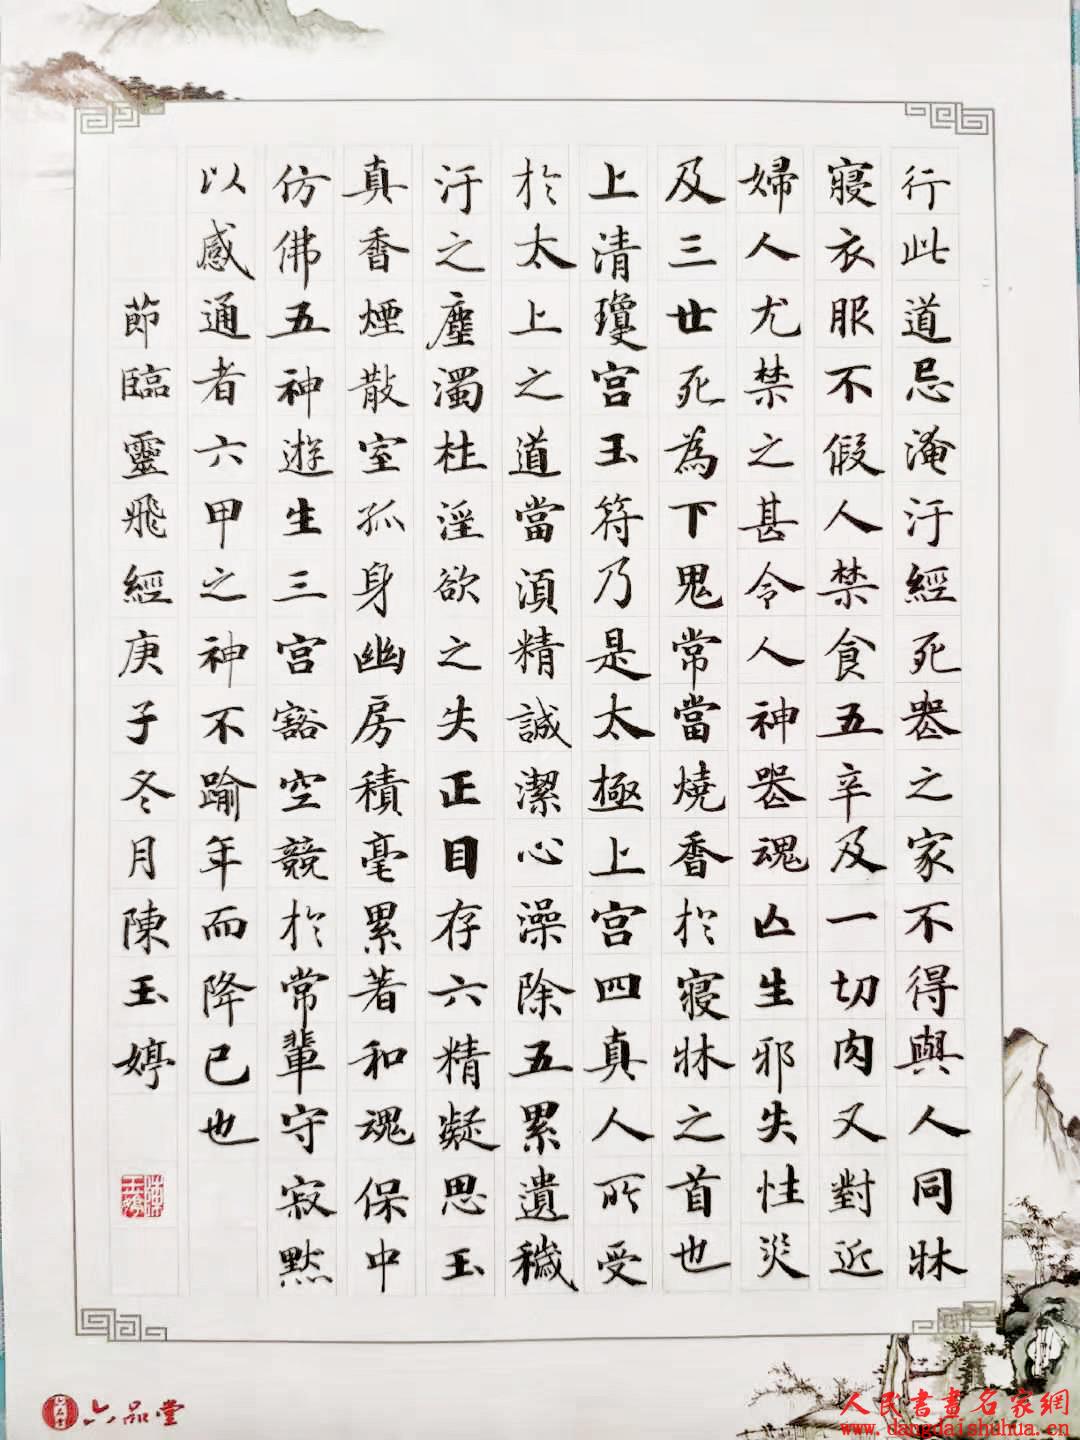 行此道忌淹汙經死器之家不得與人同牀
寢衣服不假人禁食五辛及一切肉又對近
婦人尤禁之甚令人神器魂亾生邪失性災
及三世死為下鬼常當燒香於寢牀之首也
上清瓊宮玉符乃是太極上宮四真人所受
於太上之道當湏精誠潔心澡除五累遺穢
汙之塵濁杜淫欲之失正目存六精凝思玉
真香煙散室孤身幽房積毫累著和魂保中
仿佛五神遊生三宮豁空競於常輩守寂默
以感通者六甲之神不踰年而降已也
節臨靈飛經庚子冬月陳玉婷
陳玉婷
六品堂
人民書畫名家網
www.dangdaishuhua.cn